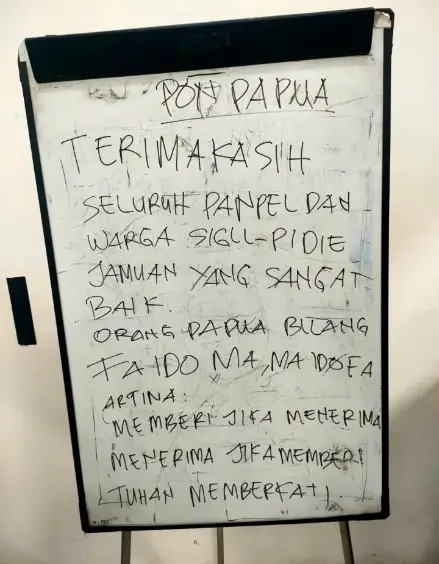 PAPUA
TERIMAKASIH
SELURUH PANPEL DAN
WARGA SIGLI-PIDIE
JAMUAN YANG SANGAT
BAIK.
ORANG PAPUA BILANG
FAIDO MA, MA
ARTINA:
MEMBERI JIKA MENERIMA
MENERIMA JIKA MEMBERI
TUHAN MEMBERKATI